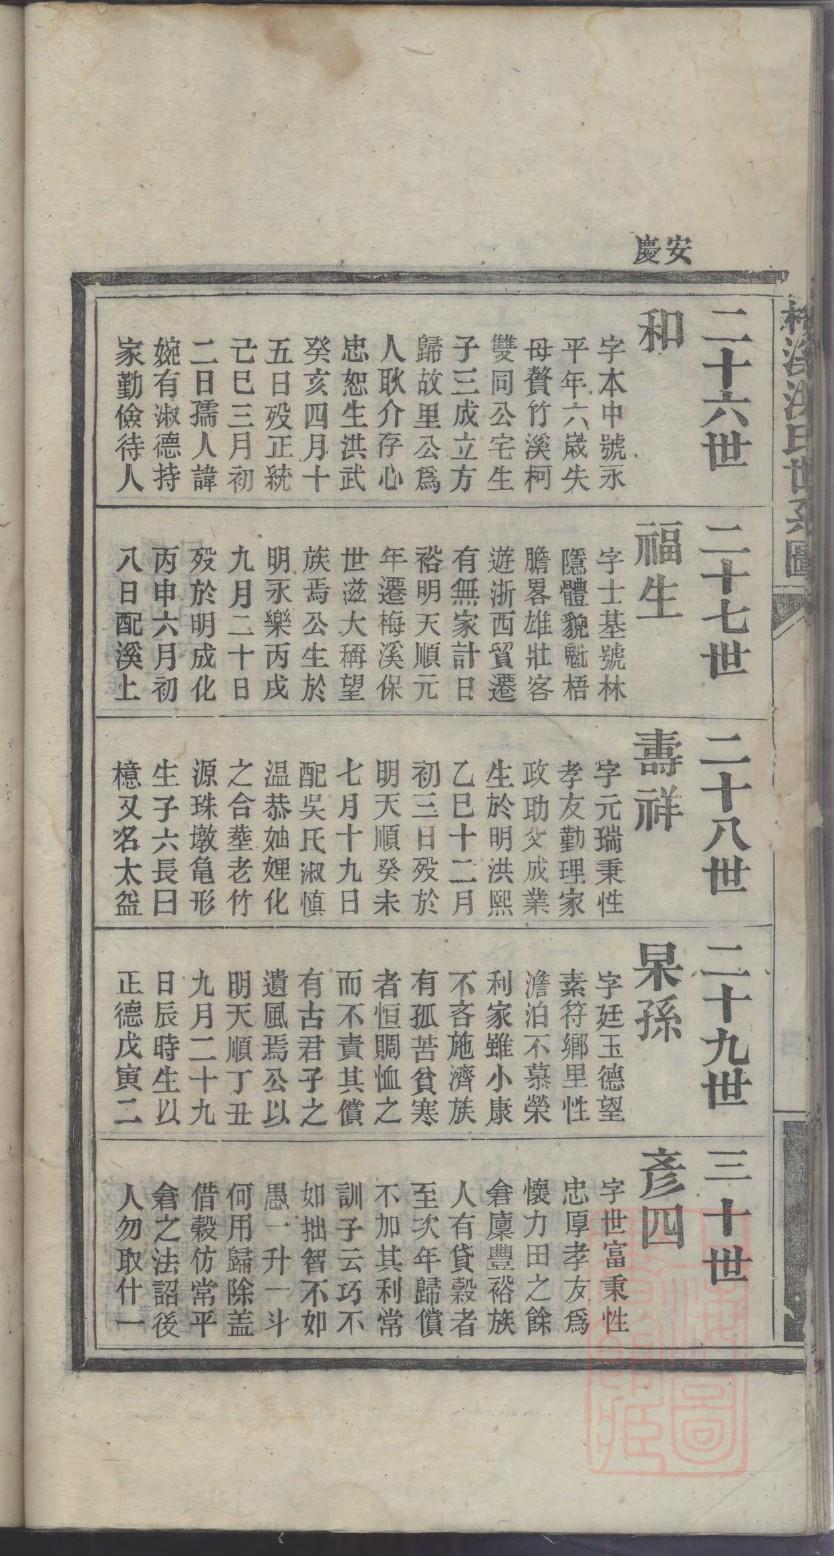 安慶
梅溪洪氏世系圖
二十六世
和
字本中號永
平年六歲失
母贅竹溪柯
雙同公宅生
子三成立方
歸故里公爲
人耿介存心
忠恕生洪武
癸亥四月十
五日歿正統
己巳三月初
二日孺人諱
婉有淑德持
家勤儉待人
二十七世
福生
字士基號林
隱體貌魁梧
膽畧雄壯客
遊浙西貿遷
有無家計日
裕明天順元
年遷梅溪保
世滋大稱望
族焉公生於
明永樂丙戌
九月二十日
歿於明成化
丙申六月初
八日配溪上
二十八世
壽祥
字元瑞秉性
孝友勤理家
政助父成業
生於明洪熙
乙巳十二月
初三日歿於
明天順癸未
七月十九日
配吳氏淑慎
温恭妯娌化
之合塟老竹
源珠墩亀形
生子六長曰
檍又名太盆
二十九世
杲孫
字廷玉德望
素符鄉里性
澹泊不慕榮
利家雖小康
不吝施濟族
有孤苦貧寒
者恒賙恤之
而不責其償
有古君子之
遺風焉公以
明天順丁丑
九月二十九
日辰時生以
正德戊寅二
三十世
彥四
字世富秉性
忠厚孝友爲
懷力田之餘
倉廩豐裕族
人有貸穀者
至次年歸償
不加其利常
訓子云巧不
如拙智不如
愚一升一斗
何用歸除盖
借穀仿常平
倉之法詔後
人勿取什一